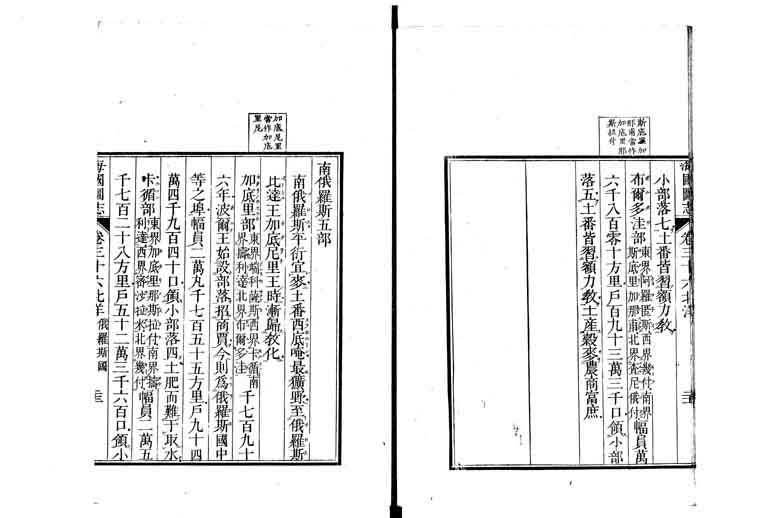 斯底羅加
那甫當作
加底里那
斯拉付
小部落七土番皆習額力教
布爾多洼部東界阿羅匿斯西界幾付南界
斯底里加那甫北界查尼俄付幅員萬
六千八百零十方里戶百九十三萬三千口領小部
落五土番皆習額力教土產穀麥農商富庶
海國圖志
卷三十六北洋
加底尼里
當作加底
里尼
南俄羅斯五部
南俄羅斯平衍宜麥土番西底唵最獷野至俄羅斯
比達王加底尼里王時漸歸教化
加底里部東界端科薩斯西界卞循南
界疇利達北界布爾多洼千七百九十
六年波爾王始設部落招商賈今則爲俄羅斯國中
等之埠幅員二萬丸千七百五十五方里戶九十四
萬四千九百四十口領小部落四土肥而難于取水
卞循部東界加底里那斯拉付南界疇
利達西界西沙拉米北界幾付幅員二萬五
千七百二十八方里戶五十二萬三千六百口領小
海國圖志
卷三十六北洋 俄羅斯國